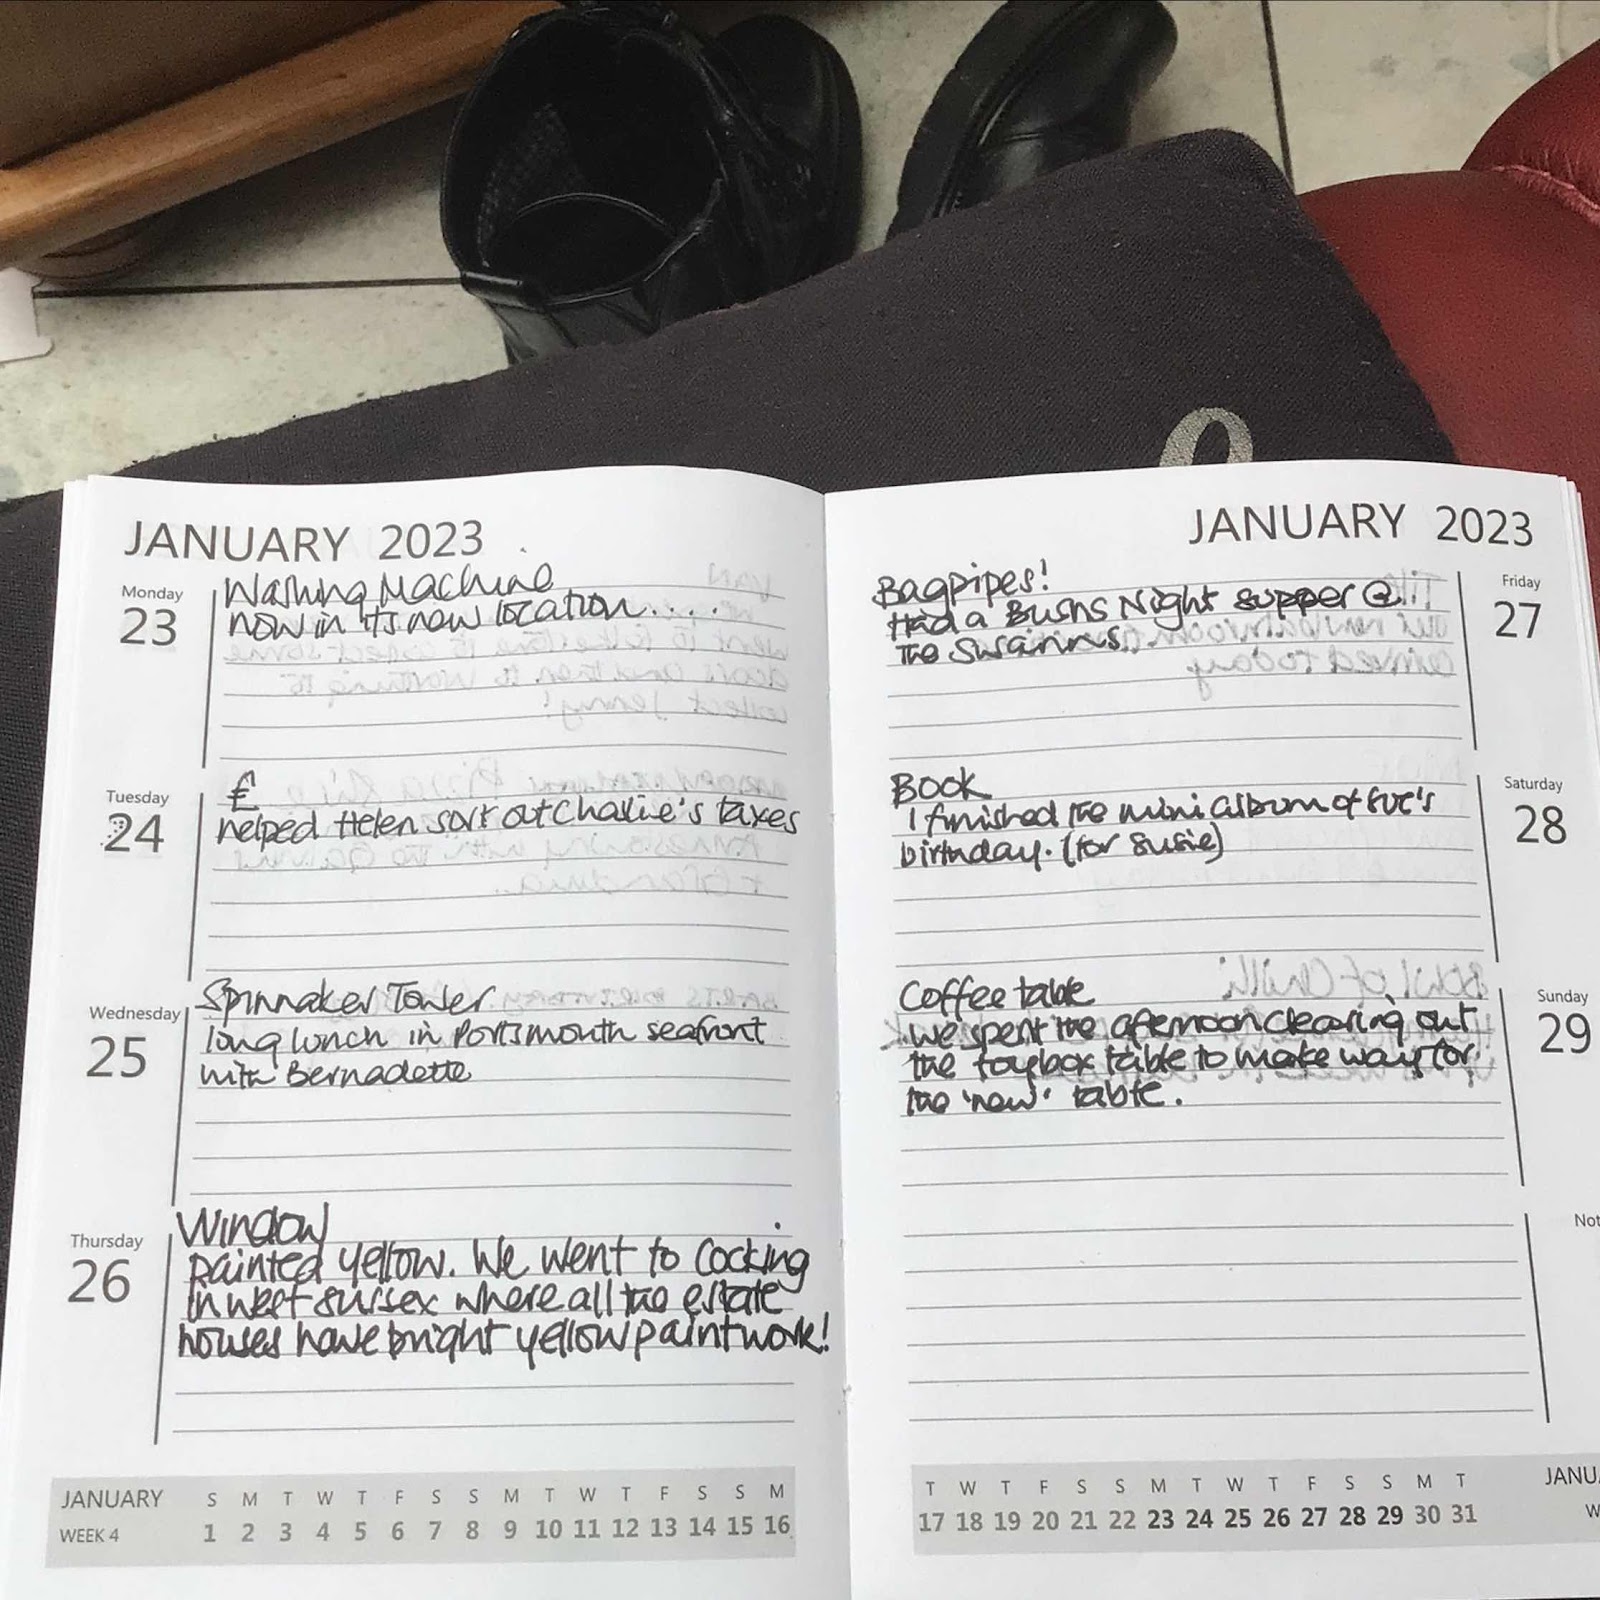 JANUARY 2023
Monday
23
Washing Machine
now in its new location....
Tuesday
24
£
helped Helen sort out Charlie's taxes
Wednesday
25
Spinnaker Tower
long lunch in Portsmouth seafront
with Bernadette
Thursday
26
Window
painted yellow. We went to Cocking
in West Sussex where all the estate
houses have bright yellow paintwork!
JANUARY
WEEK 4
S M T W T F S S M T W T F S S M
1 2 3 4 5 6 7 8 9 10 11 12 13 14 15 16
JANUARY 2023
Friday
27
Bagpipes!
Had a Burns Night supper @
the Swanns.
Saturday
28
Book
I finished the mini album of Eve's
birthday. (for Susie)
Sunday
29
Coffee table
We spent the afternoon clearing out
the toybox table to make way for
the 'new' table.
Not
T W T F S S M T W T F S S M T
17 18 19 20 21 22 23 24 25 26 27 28 29 30 31
JANU
W